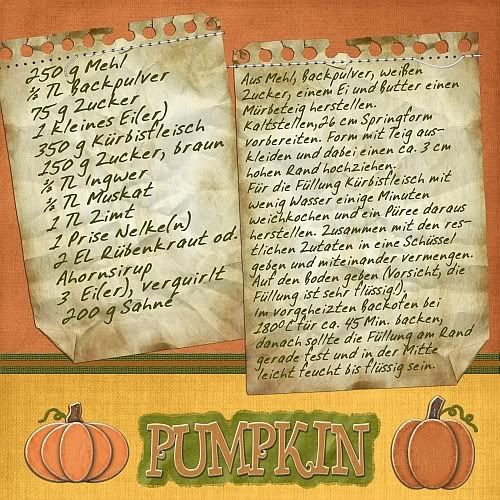 250 g Mehl
½ TL Backpulver
75 g Zucker
1 kleines Ei(er)
350 g Kürbisfleisch
150 g Zucker, braun
½ TL Ingwer
½ TL Muskat
1 TL Zimt
1 Prise Nelke(n)
2 EL Rübenkraut od.
Ahornsirup
3 Ei(er), verquirlt
200 g Sahne
Aus Mehl, Backpulver, weißen
Zucker, einem Ei und Butter einen
Mürbeteig herstellen.
Kaltstellen, 26 cm Springform
vorbereiten. Form mit Teig aus-
kleiden und dabei einen ca. 3 cm
hohen Rand hochziehen.
Für die Füllung Kürbisfleisch mit
wenig Wasser einige Minuten
weichkochen und ein Püree daraus
herstellen. Zusammen mit den res-
tlichen Zutaten in eine Schüssel
geben und miteinander vermengen.
Auf den Boden geben (Vorsicht, die
Füllung ist sehr flüssig!),
Im vorgeheizten Backofen bei
180°C für ca. 45 Min. backen,
danach sollte die Füllung am Rand
gerade fest und in der Mitte
leicht feucht bis flüssig sein.
PUMPKIN